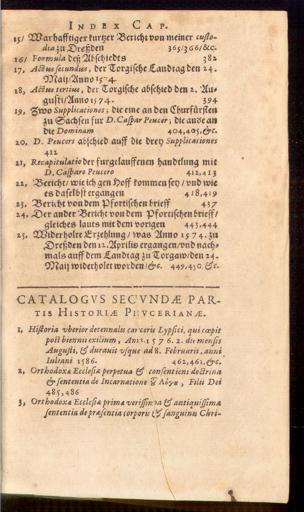 INDEX CAP.
15/ Warhafftiger kurtzer Bericht von meiner custo-
dia zu Dreßden 365/366/&c.
16/ Formula deß Abschiedts 382
17, Actus secundus, der Torgische Landtag den 24.
Maij/Anno 1574.
18, Actus tertius, der Torgische abschied den 2. Au-
gusti/Anno 1574. 394
19, Zwo Supplicationes; die eine an den Churfürsten
zu Sachsen fur D. Caspar Peucer; die ander an
die Dominam 404,405,&c.
20. D. Peucers abschied auff die drey Supplicationes
412
21, Recapitulatio der furgelauffenen handtlung mit
D. Casparo Peucero 412,413
22. Bericht/wie ich gen Hoff kommen sey/vnd wie
es daselbst ergangen 418,419
23. Bericht von dem Pfortischen brieff 437
24. Der ander Bericht von dem Pfortischen brieff/
gleiches lauts mit dem vorigen 443,444
25. Widerholte Erzehlung/was Anno 1574. zu
Dreßden den 12. Aprilis ergangen/vnd nach-
mals auff dem Landtag zu Torgaw/den 24.
Maij widerholet worden/&c. 449,450.&c.
CATALOGVS SECVNDÆ PAR-
TIS HISTORIÆ PEVCERIANÆ.
1, Historia vberior decennalis carceris Lypsici, qui cœpit
post bienne exilium, Anno 1576. die mensis
Augusti, & durauit vsque ad 8. Februarii, anni
Iuliani 1586. 462,463,&c.
2, Orthodoxæ Ecclesiæ perpetua & consentiens doctrina
& sententia de Incarnatione τȣ̃ Λόγȣ, Filii Dei
485,486
3, Orthodoxæ Ecclesiæ primæ verissima & antiquissima
sententia de præsentia corporis & sanguinis Chri-